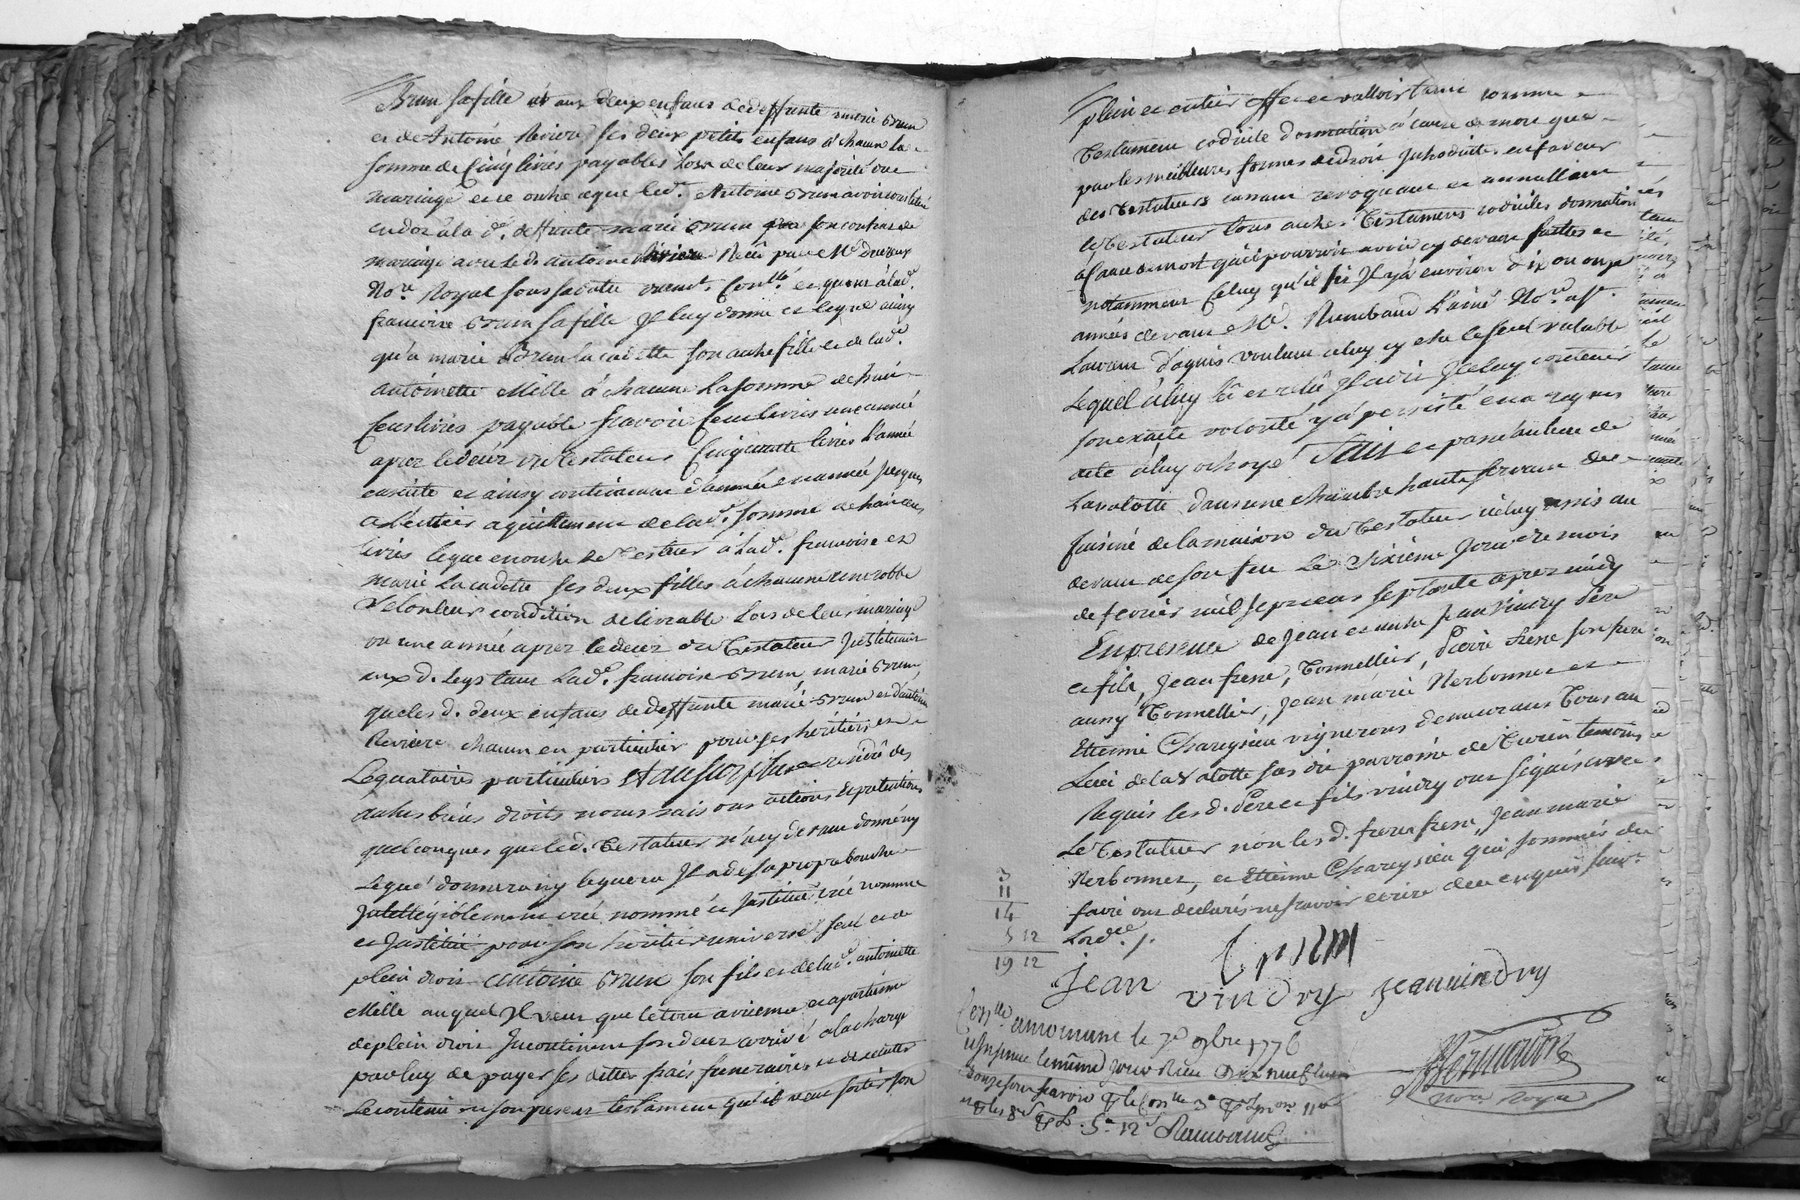 Brun sa fille et aux deux enfans de deffunte marie Brun
et de Antoine Riviere ses deux petits enfans à chacun la
somme de Cinq livres payables lors de leur majorité ou
mariage et ce outre ce que led. Antoine Brun avoit constitué
en dot à la d.e deffunte marie Brun par son contrat de
mariage avec led. antoine Riviere Reçû par Me
No.re Royal sous sa datte Cont.llé et quant à lad.e
francoise Brun sa fille Il luy donne et legue ainsy
qu'a marie Brun la cadette son autre fille et de lad.e
antoinette Mille à chacune la somme de huit
Cens livres payable sçavoir Cent livres une année
aprez le decez du testateur Cinquante livres l'année
ensuite et ainsy continuant d'année en année jusques
a l'entier aquittement de lad.e somme de huit cens
livres legue en outre le testateur à lad.e francoise et
marie la cadette ses deux filles à chacune une robbe
selon leur condition delivrable lors de leur mariage
ou une année aprez le decez du Testateur Instituant
aux d. legs tant lad.e francoise Brun, marie Brun
que les d. deux enfans de deffunte marie Brun et d'antoine
Riviere chacun en particulier pour ses heritiers et
Leguataires particuliers Et au surplus et residû des
autres biens droits noms rais ons actions et pretentions
quelconques que led. Testateur n'a cy devant donné ny
legué donnera ny leguera Il a de sa propre bouche
Intelligiblement créé nommé et Institué créé nomme
et Institue pour son heritier universel seul et de
plein droit antoine Brun son fils et de lad.e antoinette
Mille auquel Il veut que le tout avienne et apartienne
de plein droit Incontinent son decez arrivé a la charge
par luy de payer ses dettes frais funeraires et
Le contenu en son present testament qu'il veut sortir son
plein et entier effet et valloir tant comme
Testament codicile donnation à cause de mort que
par les meilleures formes de droit Introduittes en faveur
des testateurs cassant revoquant et annullant
le Testateur tous autres Testaments codiciles donnations
a cause de mort qu'il pourroit avoir cy devant faittes et
notamment Celuy qu'il fit Il y a environ dix ou onze
annees devant Me. Rambaud l'ainé No.re a St.
Laurent d'agnis voulant celuy cy etre le seul valable
Lequel à luy lû et relû Il a dit Iceluy contenir
son exacte volonté y a persisté et en a requis
acte à luy octroyé Fait et passé au lieu de
Lavalotte dans une chambre haute servant de
cuisine de la maison du Testateur iceluy assis au
devant de son feu le Sixième Jour du mois
de fevrier mil sept cens septante aprez midy
En presence de Jean et autre Jean Vindry pere
et fils, Jean frene, Tonnellier, Pierre frene son frere
aussy Tonnellier, Jean marie Nerbonnet et
Etienne Chareysieu vignerons demeurants tous au
Lieu de la Valotte susdit parroisse de temoins
Requis les d. pere et fils vindry ont signé avec
Le Testateur non les d. frere frene, Jean marie
Nerbonnet, et Etienne Chareysieu qui sommés de
faire ont declarés ne sçavoir ecrire de ce enquis suiv.t
Lord.ce /.
Brun
Jean vindry Jean vindry
3
11
14
5 12
19 12
Con.llé a mornant le 7bre 1776
le même jour Reçu dix neuf livres
douze sous sçavoir
5# 12s Rambaud
No.re Royal